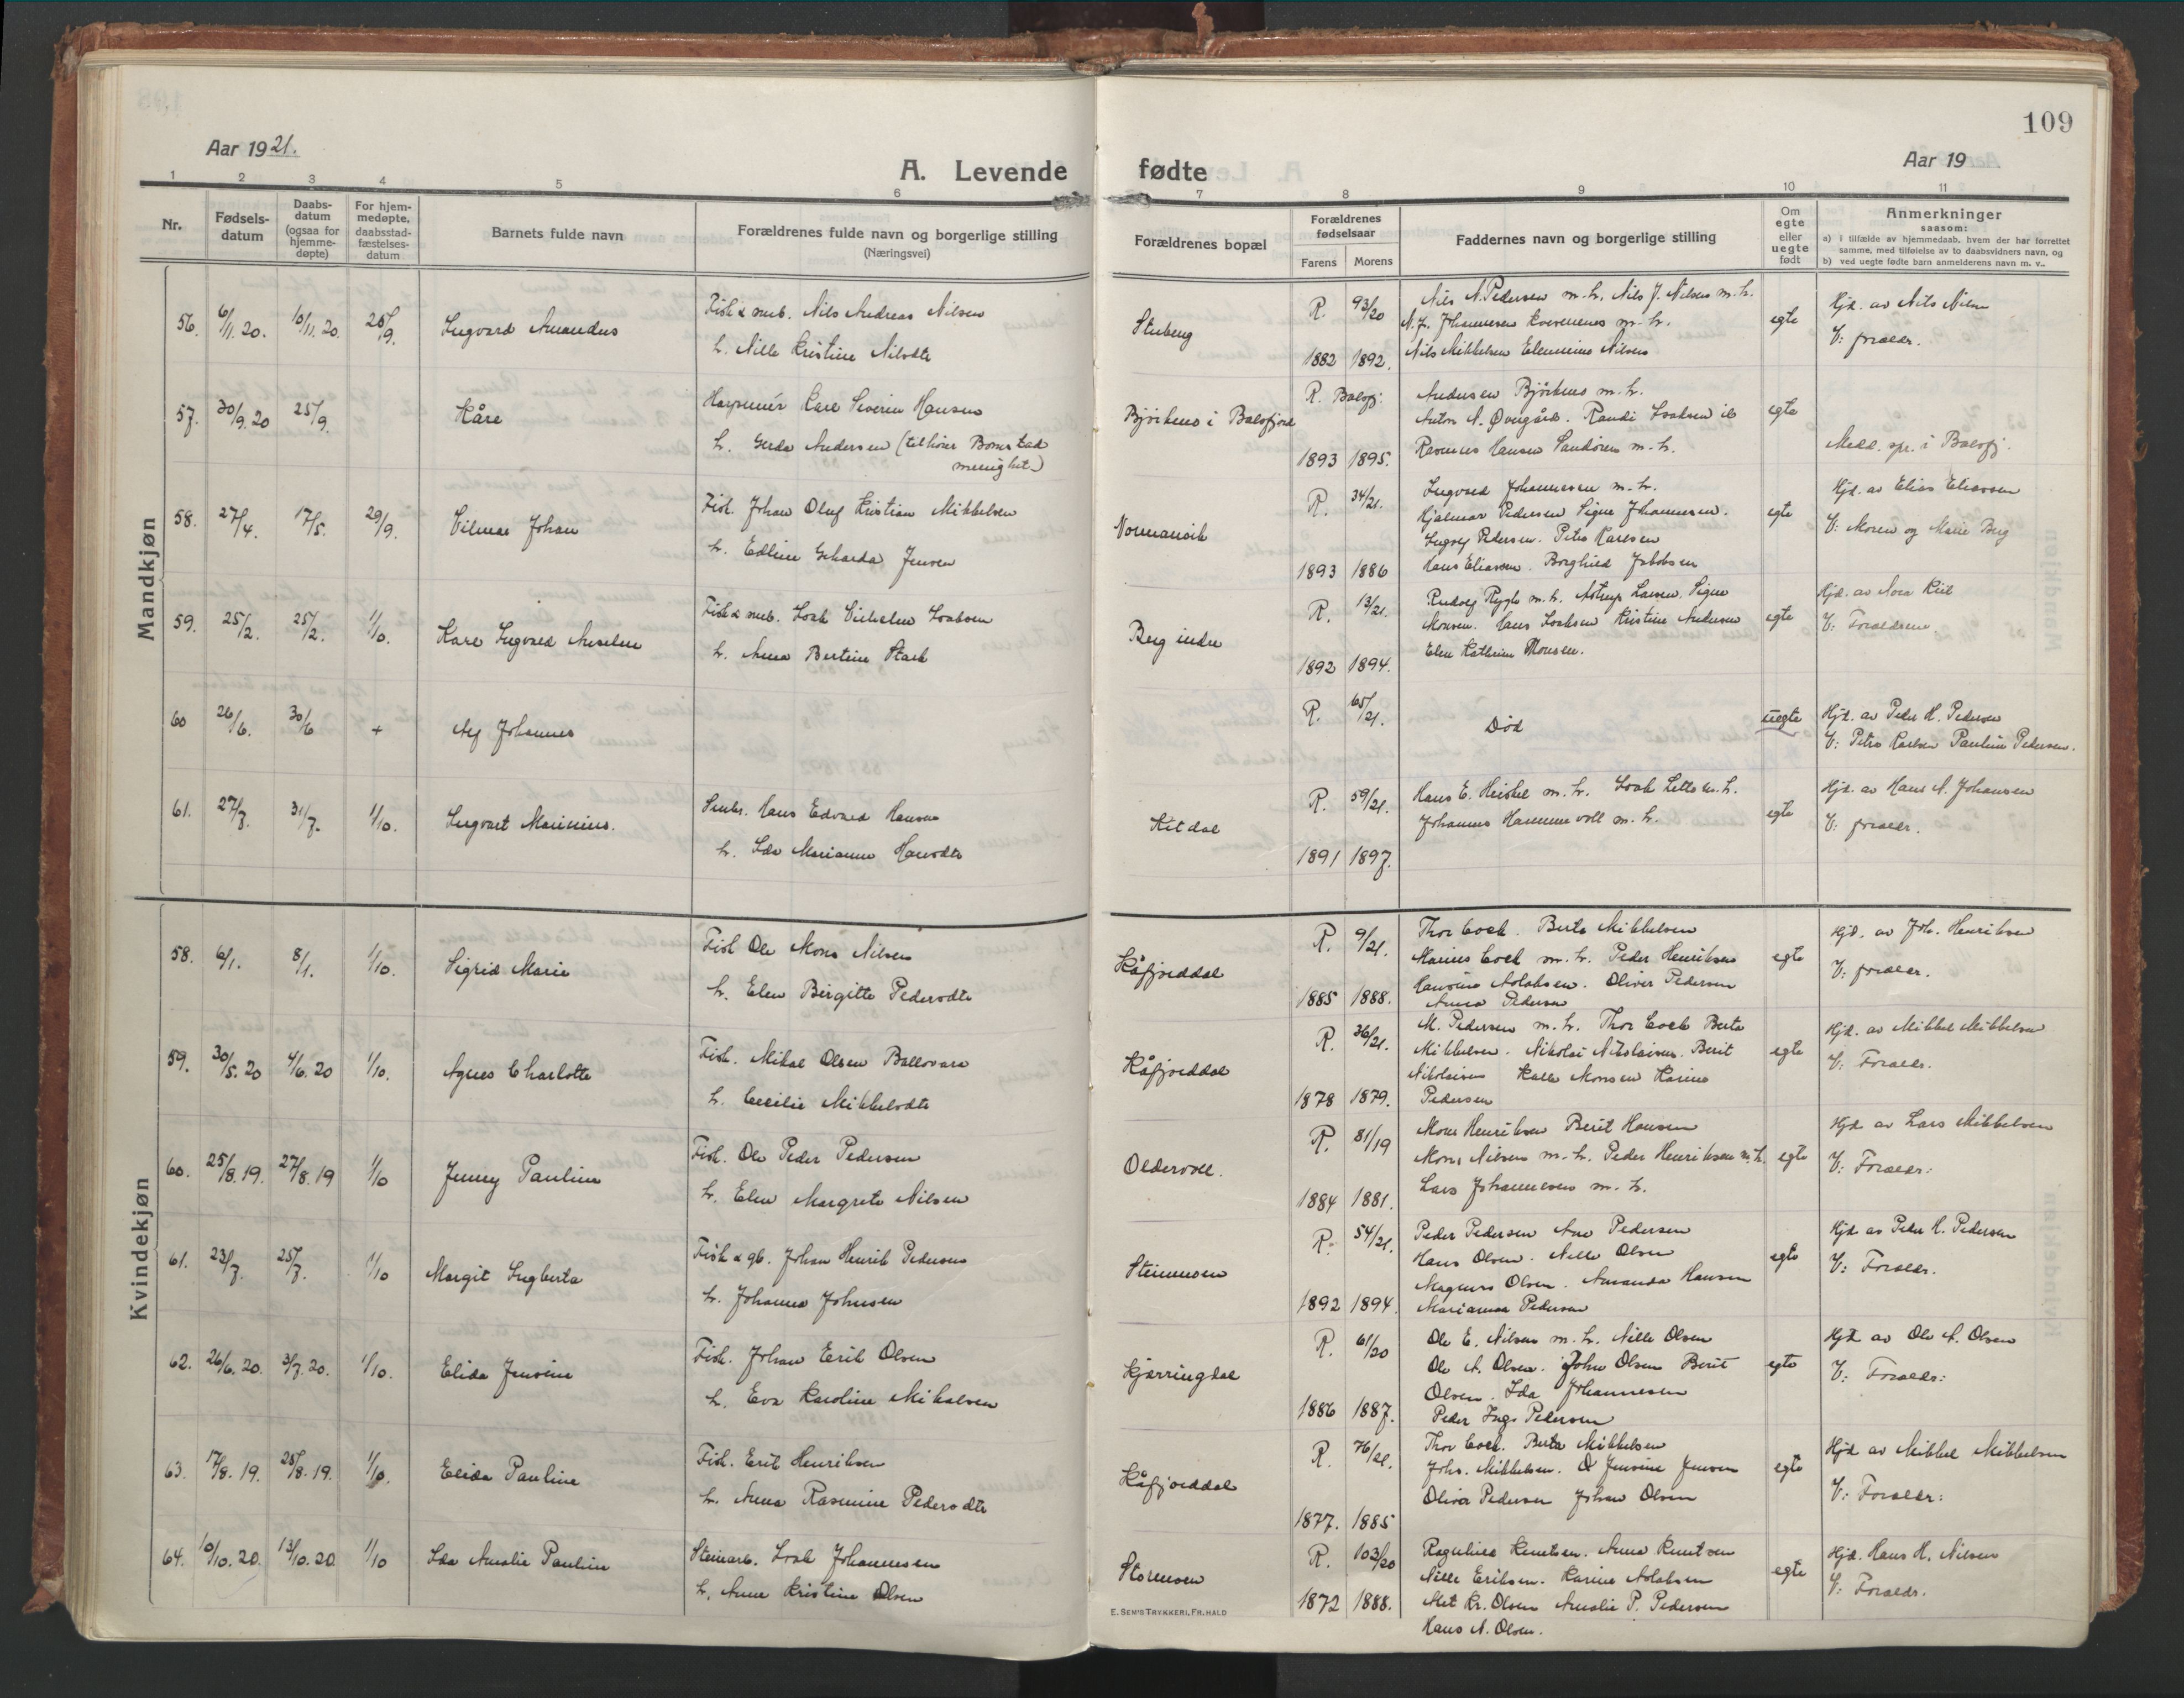 109
Aar 1921.
A. Levende fødte
Aar 19
1 2 3 4 5 6 7 8 9 10 11
Nr.
Fødselsdatum
Daabsdatum (ogsaa for hjemmedøpte)
For hjemmedøpte, daabsstadfæstelsesdatum
Barnets fulde navn
Forældrenes fulde navn og borgerlige stilling (Næringsvei)
Forældrenes bopæl
Forældrenes fødselsaar
Farens Morens
Faddernes navn og borgerlige stilling
Om egte eller uegte født
Anmerkninger
saasom:
a) i tilfælde av hjemmedaab, hvem der har forrettet samme, med tilføielse av to daabsvidners navn, og
b) ved uegte fødte barn anmelderens navn m. v..
Mandkjøn
56. 6/11. 20. 10/11. 20. 25/9. Ingvard Amandus
Fisk & smb. Nils Andreas Nilsen
h. Nille Kristine Nilsdtr
R. 93/20
1882 1892.
Nils N. Pedersen m. h. Nils J. Nilsen m. h.
N. J. Johannesen m. h.
Nils Mikkelsen Nilsen
egte
Hjd. av Nils Nilsen
V: foreldr.
57. 30/9. 20 25/9. Kåre
Karl Severin Hansen
h. Gerda Andersen (tilhører menighet)
Bjørknes i Balsfjord
R. Balsfj.
1893 1895.
Andersen Bjørknes m. h.
Anton A. Øvergård. Randi Isaksen
Rasmus Hansen Sandøren m. h.
egte
Meld. spr. i Balsfj.
58. 27/4. 17/5. 29/9. Vilmar Johan
Fisk. Johan Oluf Kristian Mikkelsen
h. Edline Geharda Jensen
R. 34/21.
1893 1886
Ingvald Johannessen m. h.
Hjalmar Pedersen Signe Johannesen.
Ingolf Pedersen. Petra Karlsen
Hans Eliassen. Borghild Jakobsen
egte
Hjd. av Elias Eliassen
V: Moren og Marie Berg
59. 25/2. 25/2. 1/10. Kare Ingvald Anselm
Fisk & smb. Isak Vilhelm Isaksen
h. Anna Bertine Stark
Berg indre
R. 13/21.
1892 1894.
Rudolf Rygh m. h. Astrup Larsen. Signe
Monsen. Hans Isaksen Kristine Andersen
Elen Kathrine Monsen.
egte
Hjd. av Nora Kiil
V: Forældrene.
60 26/6. 30/6 + Alf Johannes
R. 65/21.
Død
uegte
Hjd. av Peder H. Pedersen
V: Petra Karlsen Pauline Pedersen.
61. 27/7. 31/7. 1/10. Ingvart Marinius.
Smbr. Hans Edvard Hansen
h. Ida Marianne Hansdtr
Kitdal
R. 59/21.
1891 1897.
Hans E. Heiskel m. h. Isak m. h.
Johannes Hammervoll m. h.
egte
Hjd. av Hans A. Johansen
V: foreldr.
Kvindekjøn
58. 6/1. 8/1. 1/10. Sigrid Marie
Fisk Ole Mons Nilsen
h. Elen Birgitte Pedersdtr
Kåfjorddal
R. 9/21.
1885 1888.
Thor Cock. Berta Mikkelsen
Marius Cock m. h. Peder Henriksen
Hansine Aslaksen. Oliver Pedersen
Anna Pedersen
egte
Hjd. av Joh. Henriksen
V: foreldr.
59. 30/5. 20 4/6. 20 1/10. Agnes Charlotte
Fisk. Mikal Olsen Ballovara
h. Cecilie Mikkelsdtr
Kåfjorddal
R. 36/21.
1878 1879.
M. Pedersen m. h. Thor Cock Berta
Mikkelsen. Nikolai Nikolaisen. Berit
Nikolaisen Kalle Monsen Karine
Pedersen
egte
Hjd. av Mikkel Mikkelsen
V: Foreldr.
60. 25/8. 19. 27/8. 19 1/10 Jenny Pauline
Fisk. Ole Peder Pedersen
h. Elen Margrete Nilsen
Oldervoll.
R. 81/19
1884 1881.
Mons Henriksen Berit Hansen
Mons Nilsen m. h. Peder Henriksen m. h.
Lars Johannesen m. h.
egte
Hjd av Lars Mikkelsen
V: Foreldr:
61. 23/7. 25/7. 1/10 Margit Ingberta
Fisk & gb. Johan Henrik Pedersen
h. Johanna Johnsen
Steinnesen
R. 54/21.
1892 1894.
Peder Pedersen Ane Pedersen
Hans Olsen. Nelle Olsen
Magnus Olsen. Amanda Hansen
Marianna Pedersen
egte
Hjd av Peder H. Pedersen
V: Foreldr.
62. 26/6. 20. 3/7. 20. 1/10. Elida Jensine
Fisk. Johan Erik Olsen
h. Eva Karoline Mikalsen
Kjerringdal
R. 61/20
1886 1887.
Ole E. Nilsen m. h. Nille Olsen
Ole A. Olsen. John Olsen Berit
Olsen. Ida Johannesen
Peder Inga Pedersen
egte
Hjd av Ole A. Olsen
V: Foreldr:
63. 17/8. 19. 25/8. 19. 1/10. Elida Pauline
Fisk. Erik Henriksen
h. Anna Rasmine Pedersdtr
Kåfjorddal
R. 76/21.
1877. 1885
Thor Cock. Berta Mikkelsen
Johs. Mikkelsen. Jensine Jensen
Oliver Pedersen Johan Olsen
egte
Hjd av Mikkel Mikkelsen
V: Foreldr:
64. 10/10. 20. 13/10. 20 1/10 Ida Amalie Pauline
Steinarb. Isak Johannesen
h. Anne Kristine Olsen
Storenesen
R. 103/20
1872 1888.
Knutsen. Anna Knutsen
Nille Eriksen. Karine Aslaksen
Met Kr. Olsen Amalie P. Pedersen
Hans A. Olsen.
egte
Hjd. Hans H. Nilsen
V: Foreldr.
E. SEM'S TRYKKERI, FR. HALD